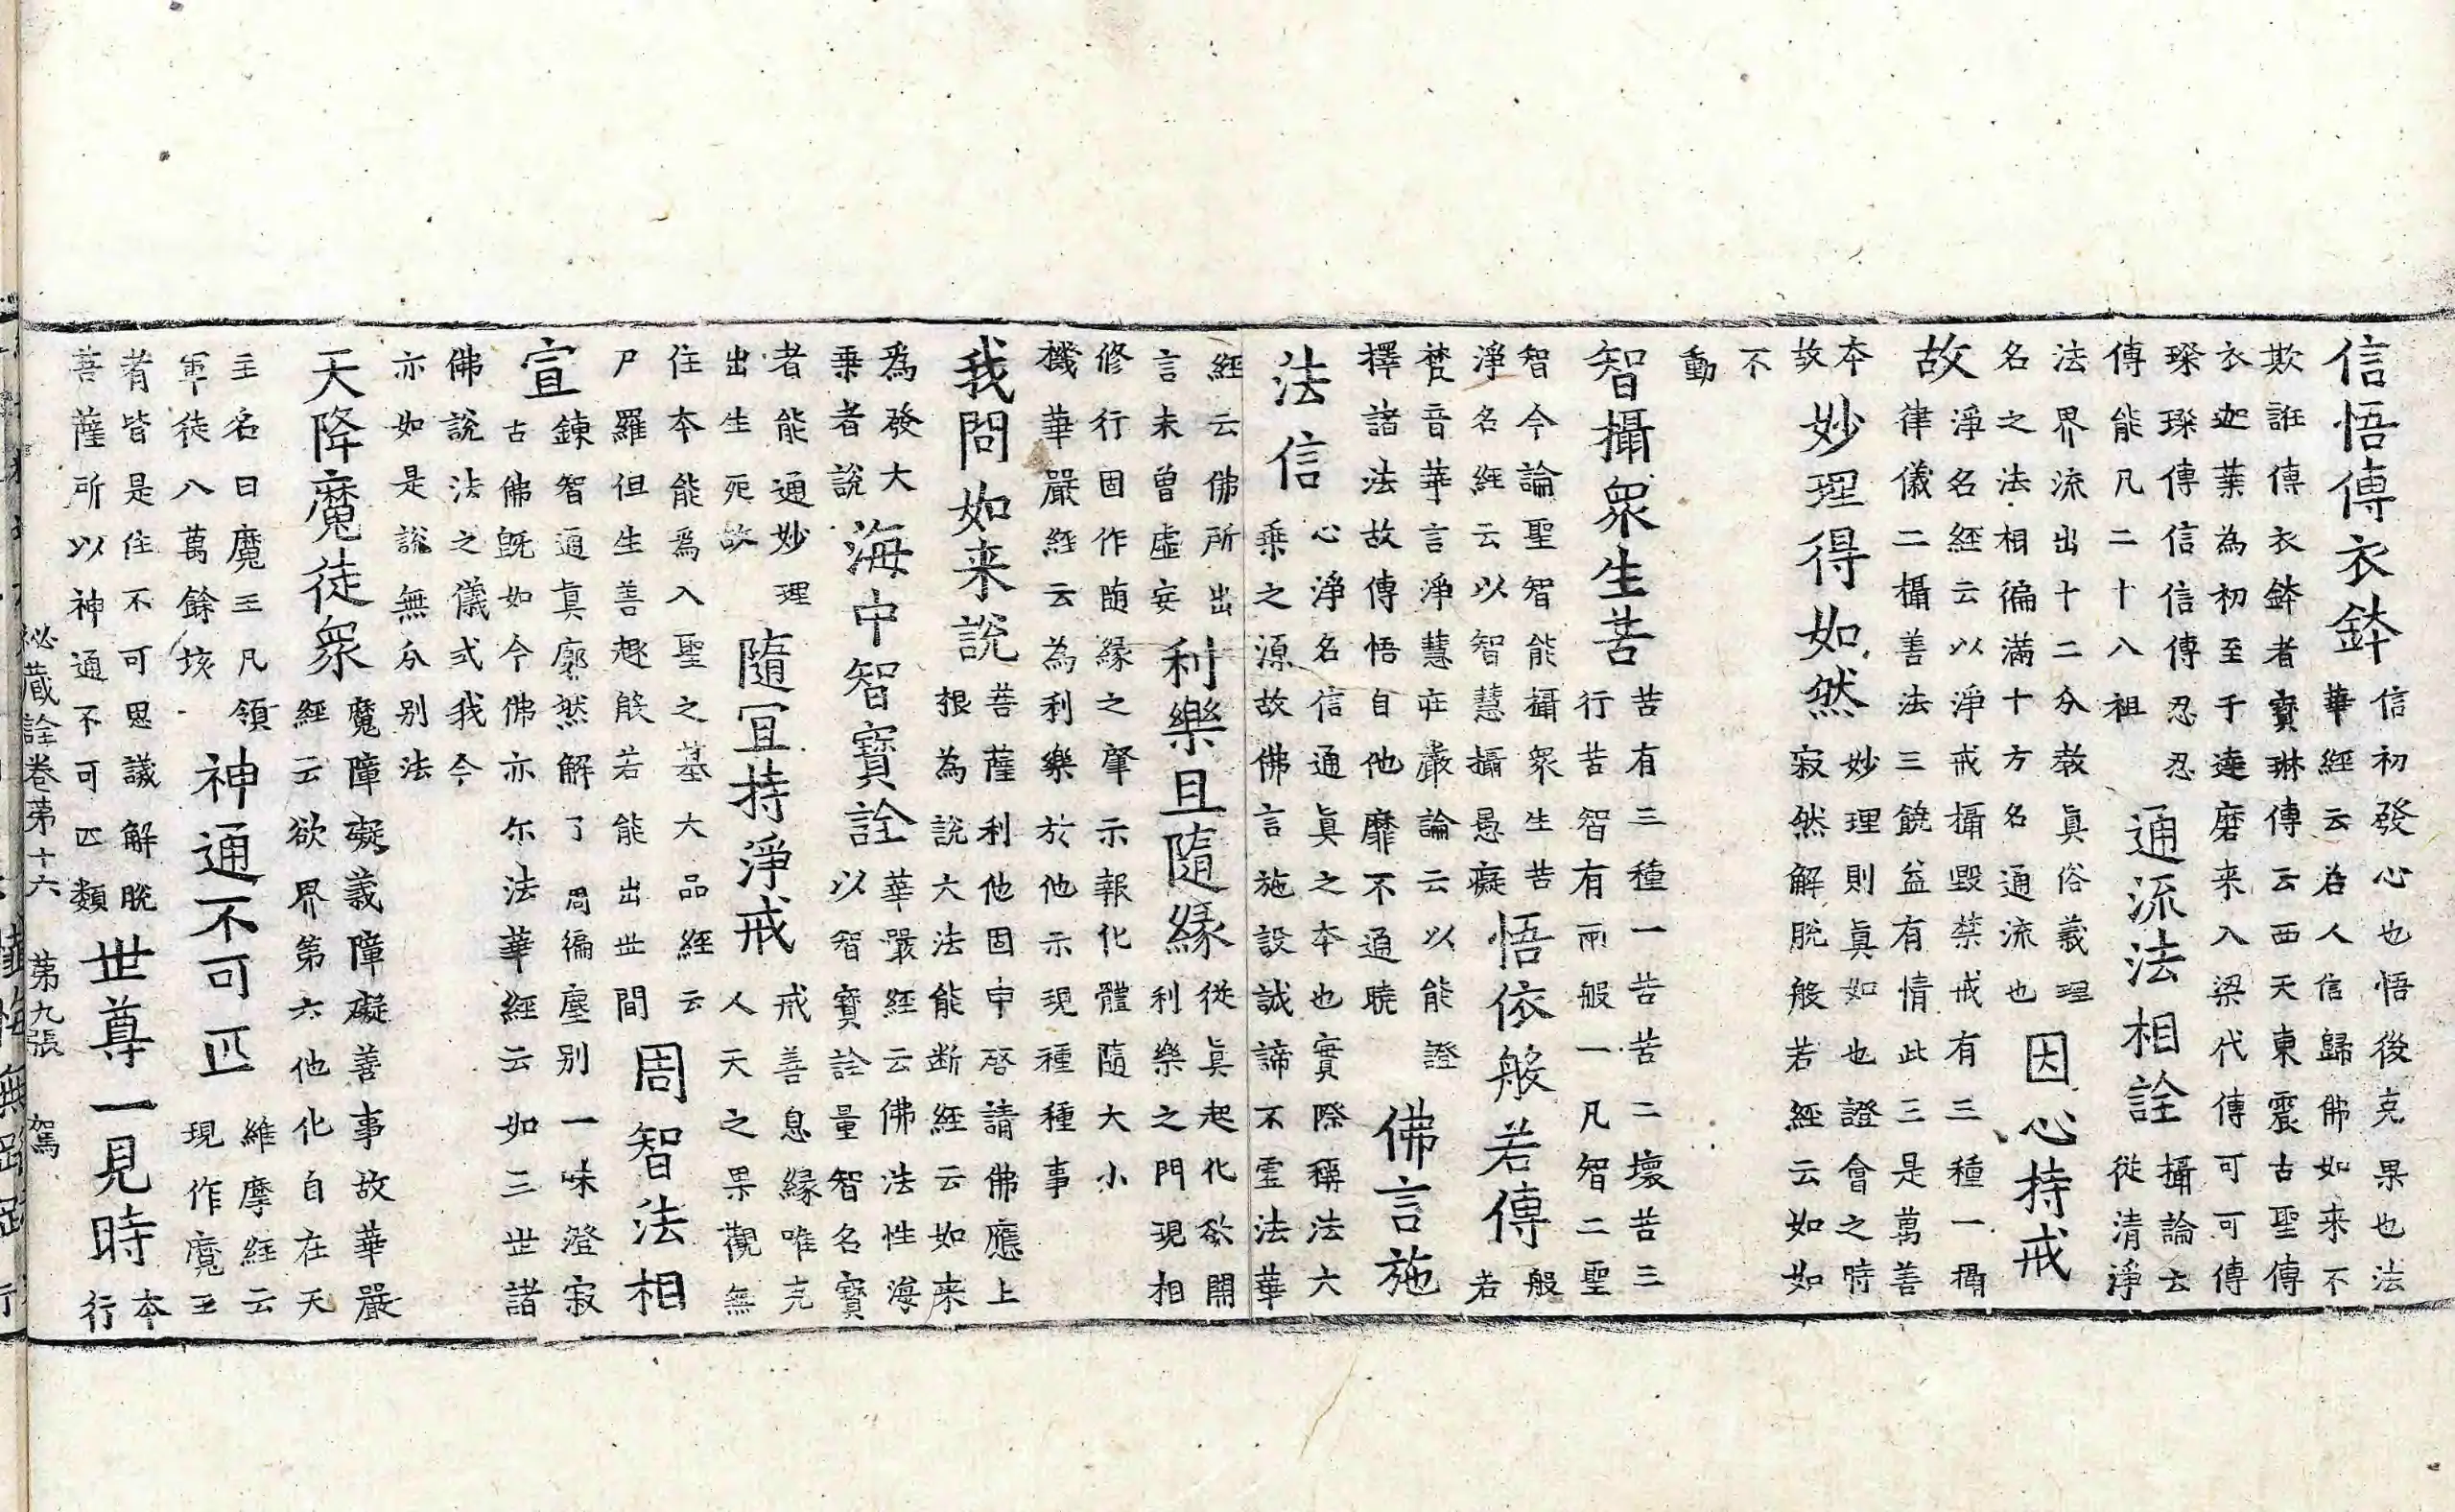 信悟傳衣鉢 信初發心也悟後克果也法
華經云若人信歸佛如来不
欺誑傳衣鉢者寶琳傳云西天東震古聖傳
衣迦葉為初至于達磨来入梁代傳可可傳
璨璨傳信信傳忍忍
傳能凡二十八祖 通流法相詮 攝論云
從清淨
法界流出十二分教真俗義理
名之法相徧滿十方名通流也 因心持戒
故 淨名經云以淨戒攝毀禁戒有三種一攝
律儀二攝善法三饒益有情此三是萬善
本
故 妙理得如然 妙理則真如也證會之時
寂然解脫般若經云如如
不
動
智攝眾生苦 苦有三種一苦苦二壞苦三
行苦智有兩般一凡智二聖
智今論聖智能攝眾生苦
淨名經云以智慧攝愚癡 悟依般若傳 般
若
梵音華言淨慧莊嚴論云以能證
擇諸法故傳悟自他靡不通曉 佛言施
法信 心淨名信通真之本也實際稱法六
乗之源故佛言施設誠諦不虛法華
經云佛所出
言未曾虛妄 利樂且隨緣 從真起化欲開
利樂之門現相
修行因作随緣之肇示報化體隨大小
機華嚴經云為利樂於他示現種種事
我問如来說 菩薩利他因申啓請佛應上
根為說大法能断經云如来
為發大
乗者說 海中智寶詮 華嚴經云佛法性海
以智寶詮量智名寶
者能通妙理
出生死故 隨冝持淨戒 戒善息緣唯克
人天之果觀無
住本能為入聖之基大品經云
尸羅但生善趣般若能出世間 周智法相
宣 鍊智通真廓然解了周徧塵别一味澄寂
古佛旣如今佛亦尒法華經云如三世諸
佛說法之儀式我今
亦如是說無分别法
天降魔徒眾 魔障礙義障礙善事故華嚴
經云欲界第六他化自在天
主名曰魔王凡領
軍徒八萬餘垓 神通不可匹 維摩經云
現作魔王
者皆是住不可思議解脫
菩薩所以神通不可匹類 世尊一見時 本
行
祕藏詮卷苐十六 苐九張 駕